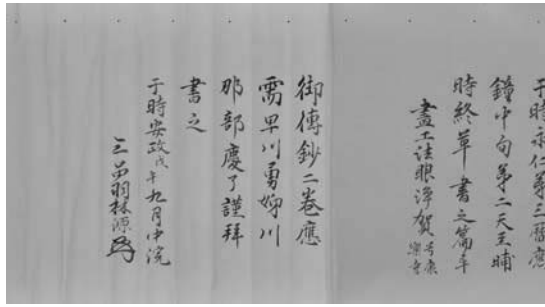 于時永仁第三暦應
鐘中旬第二天至晡
時終草書之篇畢
畫工法眼浄賀号康
楽寺
御傳鈔二巻應
需早川勇姉川
那部慶了謹拝
書之
于時安政戊午九月中浣
三
羽林源